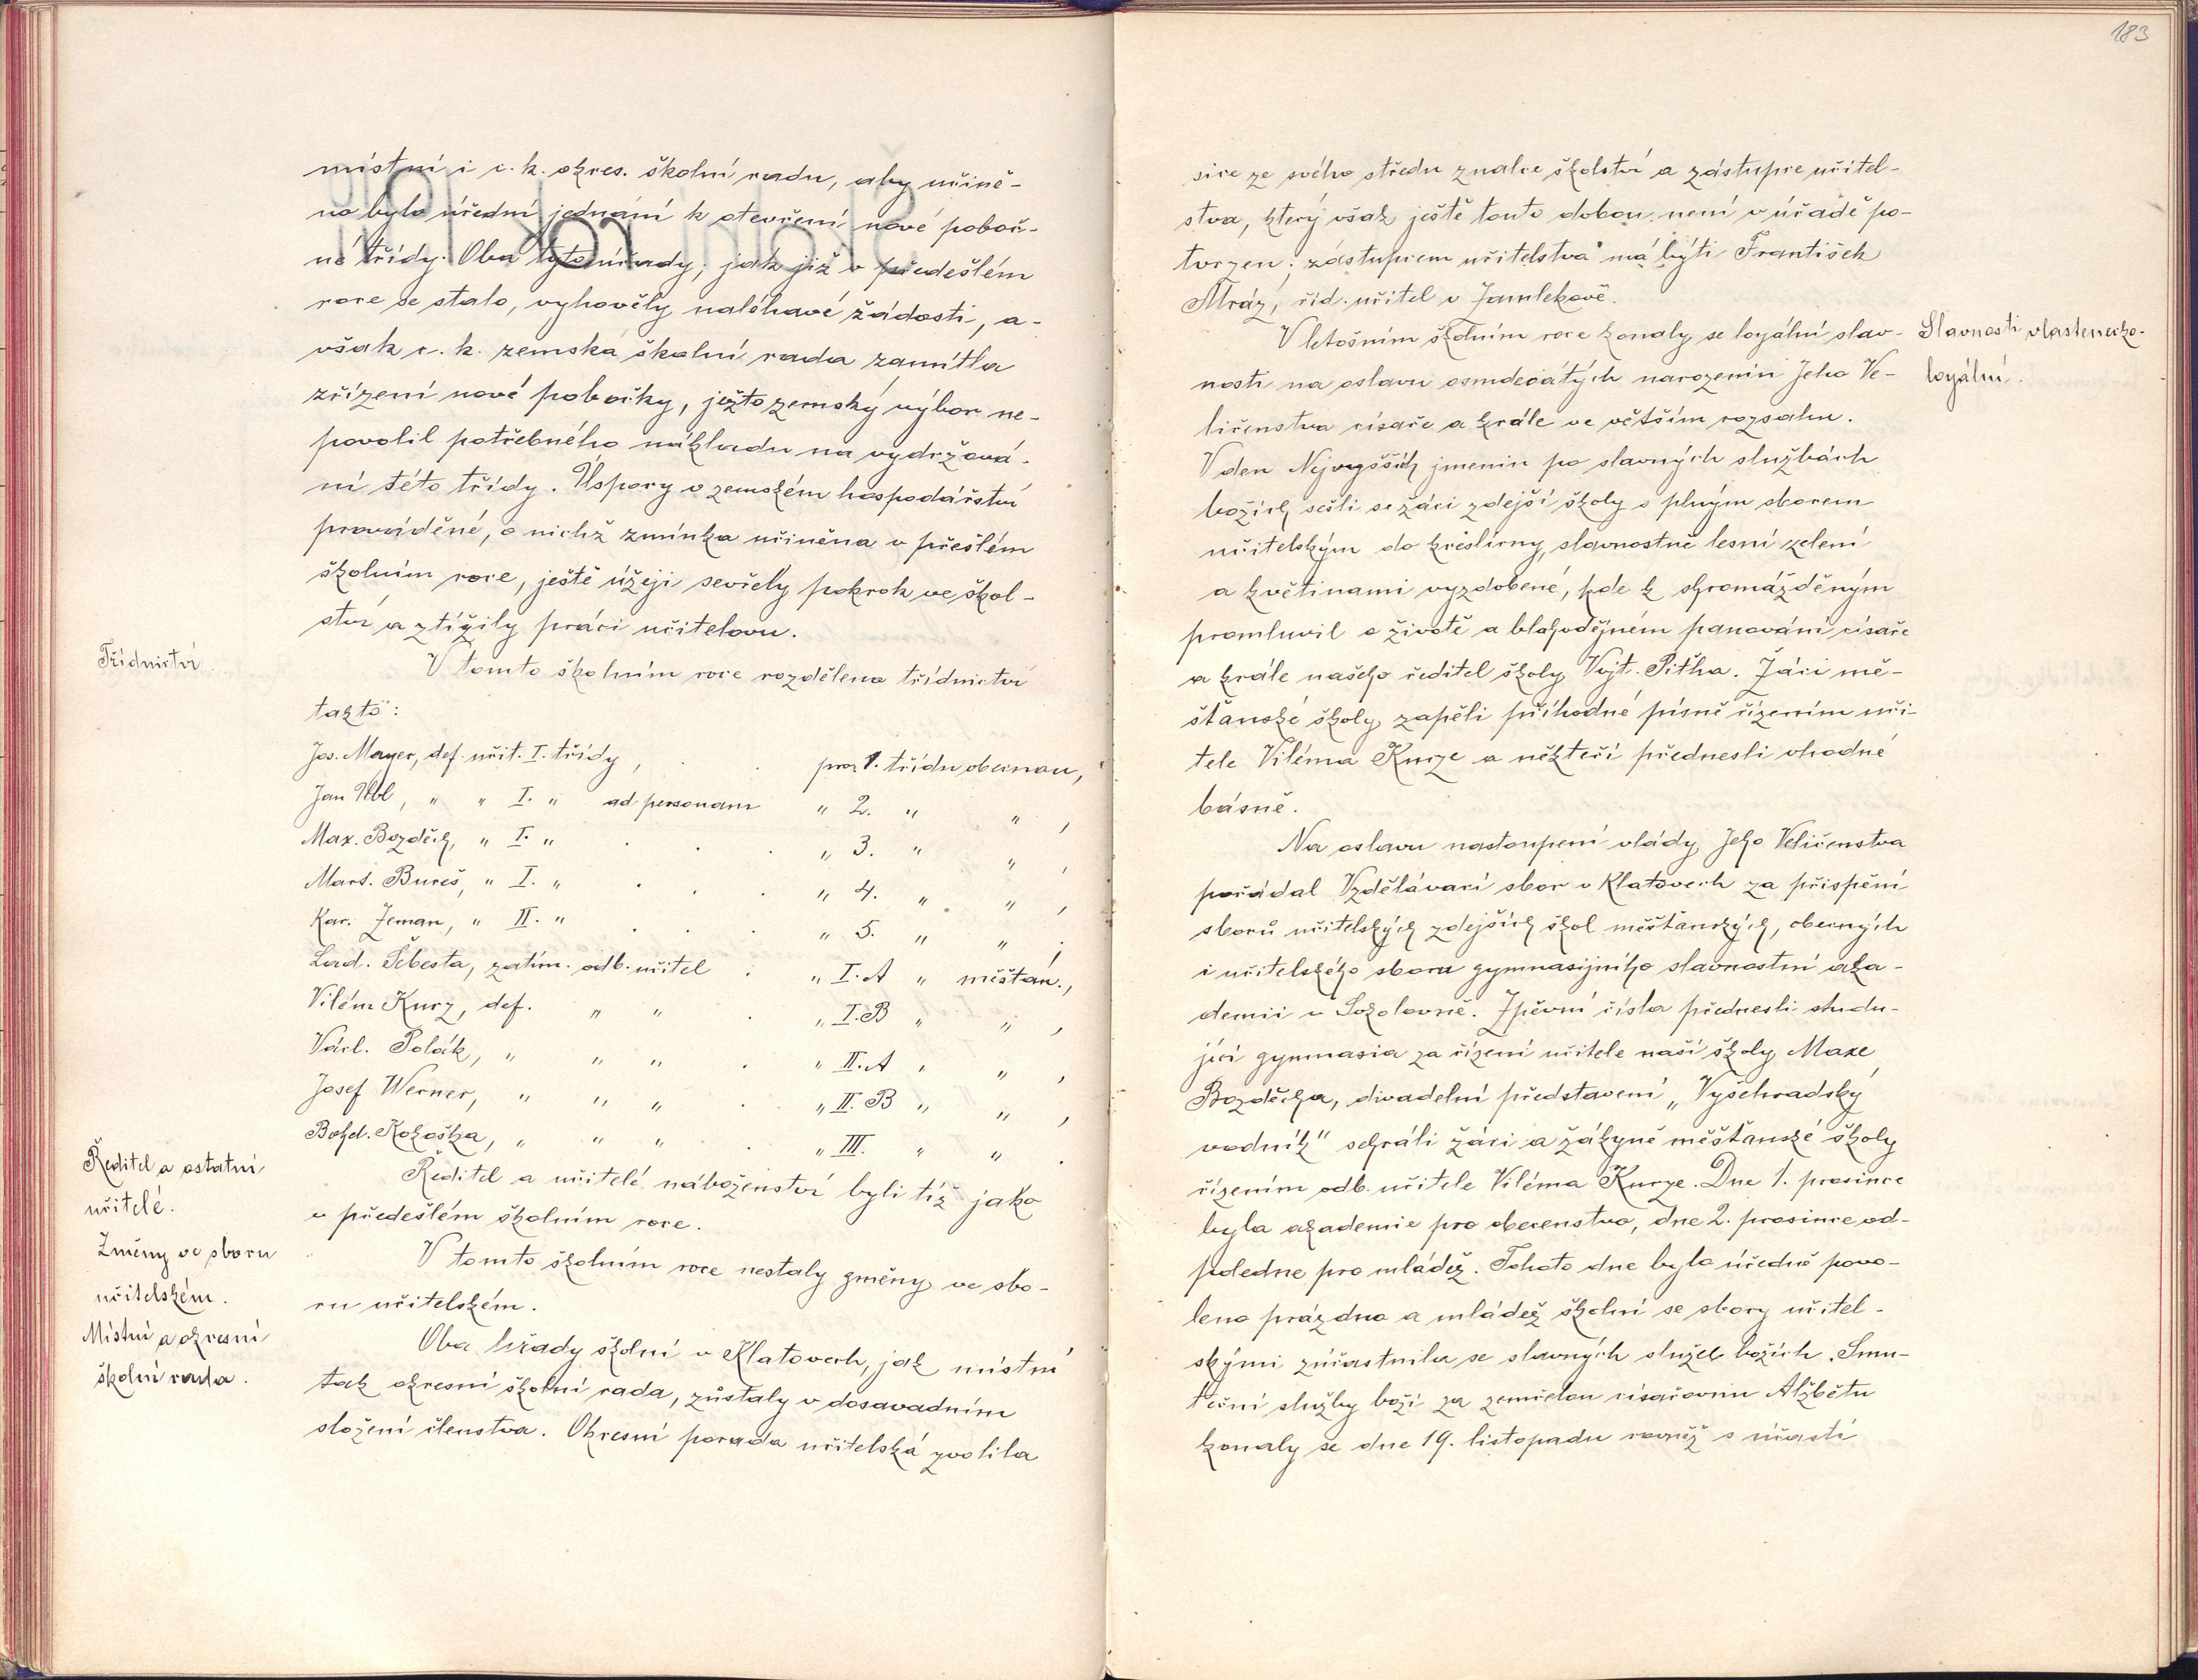 místní i c. k. okres. školní radu, aby učině-
no bylo úřední jednání k otevření nové poboč-
né třídy. Oba tyto úřady, jak již v předešlém
roce se stalo, vyhověly naléhavé žádosti, a-
však c. k. zemská školní rada zamítla
zřízení nové pobočky, ježto zemský výbor ne-
povolil potřebného nákladu na vydržová-
ní této třídy. Úspory v zemském hospodářství
prováděné, o nichž zmínka učiněna v přešlém
školním roce, ještě úžeji sevřely pokrok ve škol-
ství a ztížily práci učitelovu.
Třídnictví
V tomto školním roce rozděleno třídnictví
takto:
Jos. Mayer, def. učit. I. třídy, . . pro 1. třídu obecnou,
Jan Uhl, " " I. " ad personam " 2. " " ,
Max. Bozděch, " I. " . . . " 3. " " ,
Mart. Bureš, " I. " . . . " 4. " " ,
Kar. Zeman, " II. " . . . " 5. " " .
Lad. Šebesta, zatím. odb. učitel . " I. A " měšťan.,
Vilém Kurz, def. " " . " I. B " " ,
Václ. Polák, " " " . " II. A " " ,
Josef Werner, " " " . " II. B " " ,
Bohd. Kokoška, " " " . " III. " " .
Ředitel a ostatní
učitelé.
Ředitel a učitelé náboženství byli tíž jako
v předešlém školním roce.
Změny ve sboru
učitelském.
V tomto školním roce nestaly změny ve sbo-
ru učitelském.
Místní a okresní
školní rada.
Oba úřady školní v Klatovech, jak místní
tak okresní školní rada, zůstaly v dosavadním
složení členstva. Okresní porada učitelská zvolila
183
sice ze svého středu znalce školství a zástupce učitel-
stva, který však ještě touto dobou není v úřadě po-
tvrzen; zástupcem učitelstva má býti František
Mráz, říd. učitel v Jamlekově.
Slavnosti vlastenecko-
loyální.
V letošním školním roce konaly se loyální slav-
nosti na oslavu osmdesátých narozenin Jeho Ve-
ličenstva císaře a krále ve větším rozsahu.
V den Nejvyšších jmenin po slavných službách
božích sešli se žáci zdejší školy s plným sborem
učitelským do kreslírny, slavnostně lesní zelení
a květinami vyzdobené, kde k shromážděným
promluvil o životě a blahodějném panování císaře
a krále našeho ředitel školy Vojt. Pitha. Žáci mě-
šťanské školy zapěli příhodné písně řízením uči-
tele Viléma Kurze a někteří přednesli vhodné
básně.
Na oslavu nastoupení vlády Jeho Veličenstva
pořádal Vzdělávací sbor v Klatovech za přispění
sborů učitelských zdejších škol měšťanských, obecných
i učitelského sboru gymnasijního slavnostní aka-
demii v Sokolovně. Zpěvní čísla přednesli studu-
jící gymnasia za řízení učitele naší školy Maxe
Bozděcha, divadelní představení „Vyšehradský
vodník" sehráli žáci a žákyně měšťanské školy
řízením odb. učitele Viléma Kurze. Dne 1. prosince
byla akademie pro obecenstvo, dne 2. prosince od-
poledne pro mládež. Tohoto dne bylo úředně povo-
leno prázdno a mládež školní se sbory učitel-
skými zúčastnila se slavných služeb božích. Smu-
teční služby boží za zemřelou císařovnu Alžbětu
konaly se dne 19. listopadu rovněž s účastí